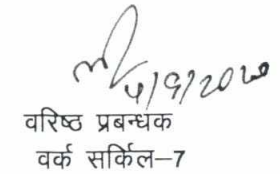 4/9/2020
वरिष्ठ प्रबन्धक
वर्क सर्किल–7